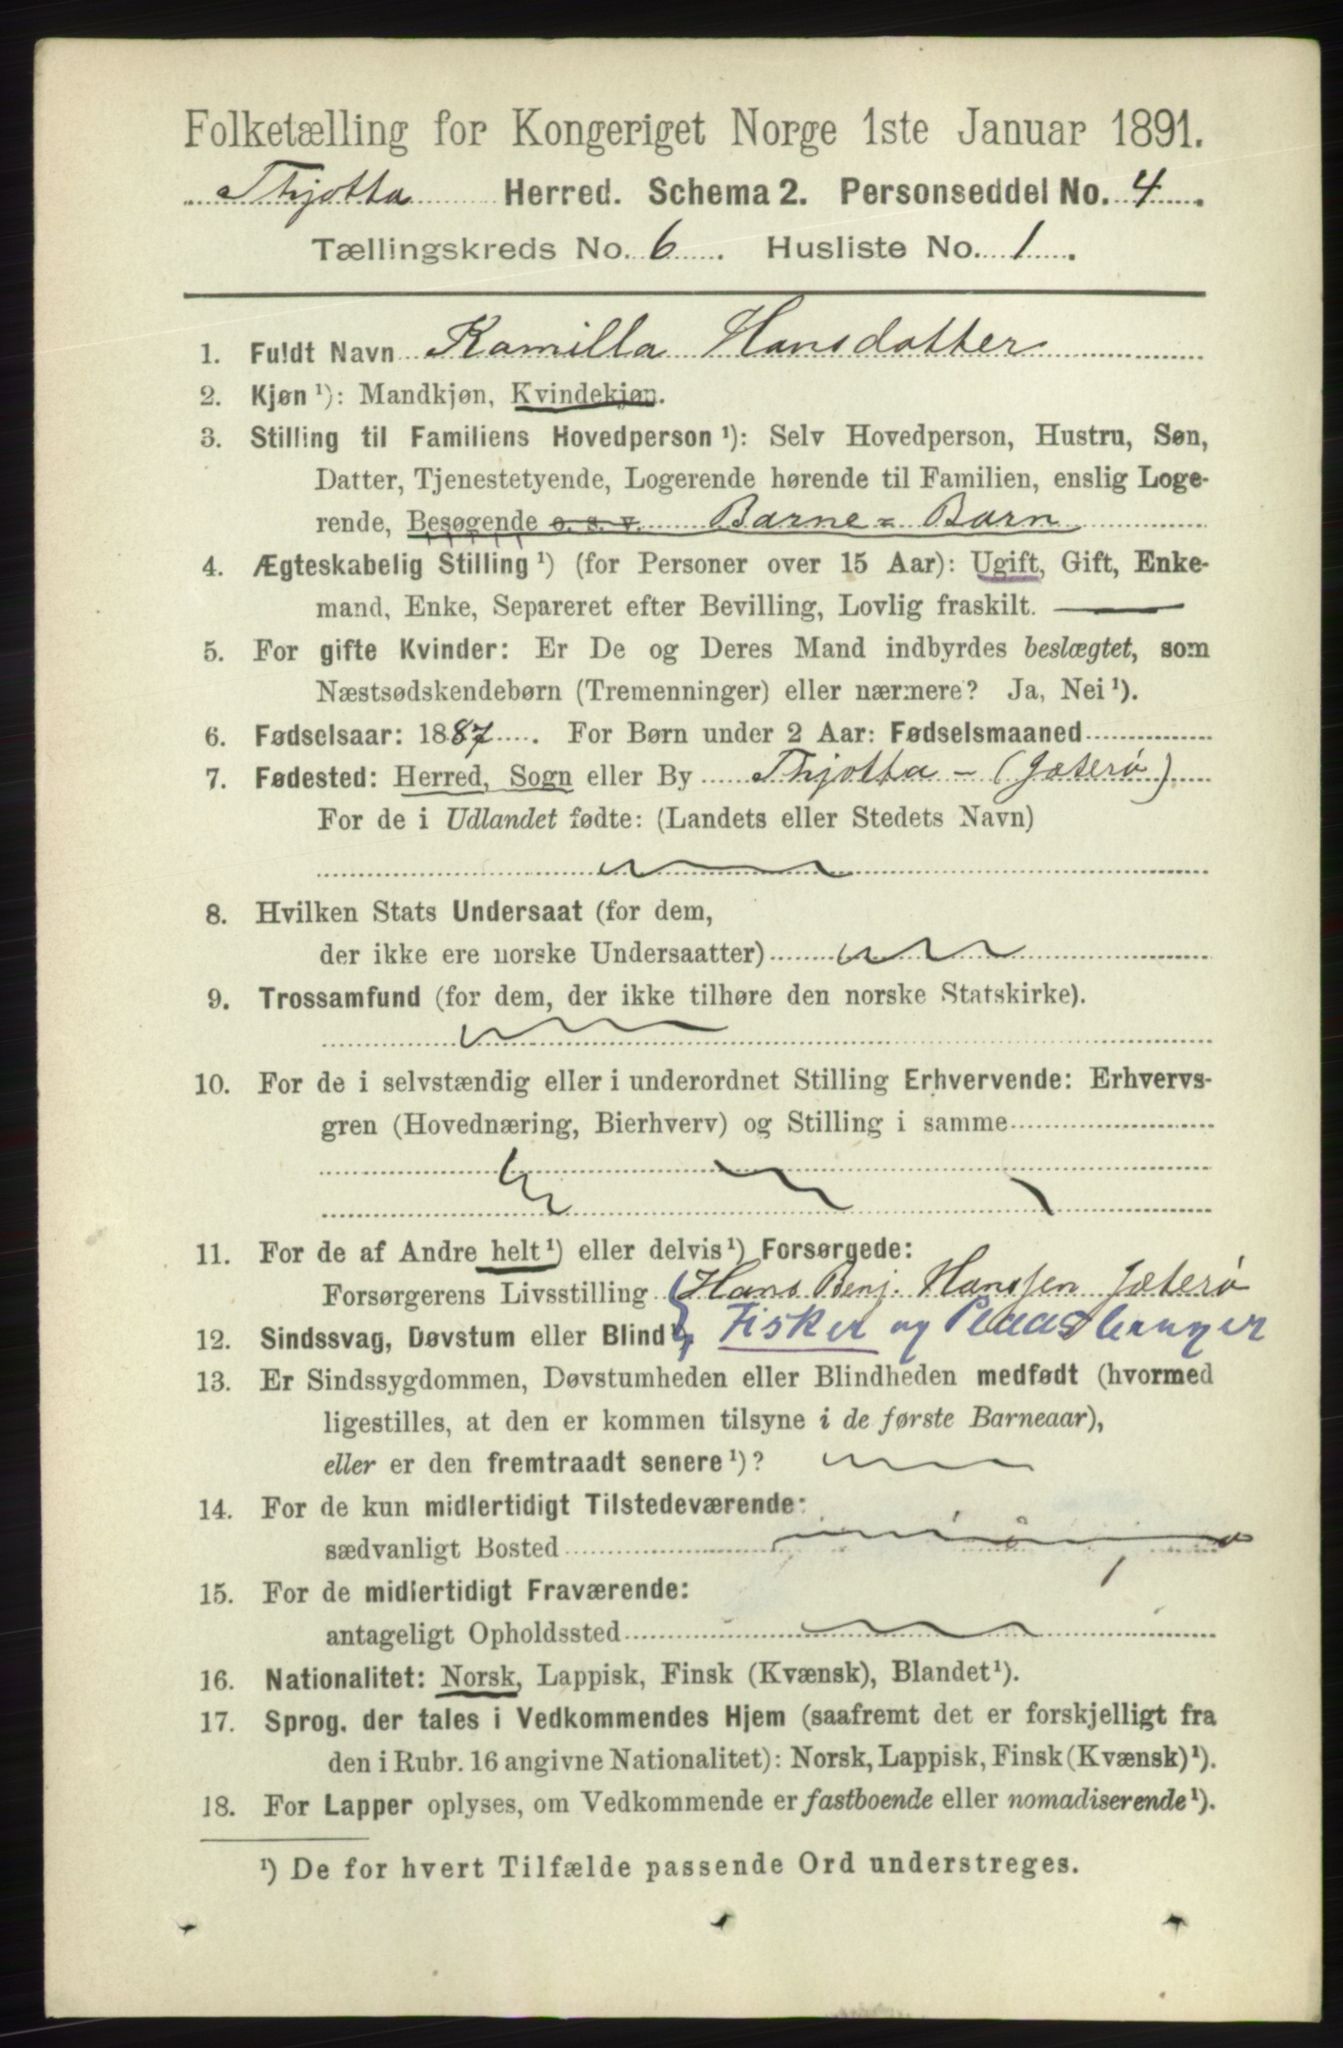 Folketælling for Kongeriget Norge 1ste Januar 1891.
Thjøtta Herred. Schema 2. Personseddel No. 4.
Tællingskreds No. 6. Husliste No. 1.
1. Fuldt Navn Kamilla Hansdatter
2. Kjøn ¹): Mandkjøn, Kvindekjøn.
3. Stilling til Familiens Hovedperson ¹): Selv Hovedperson, Hustru, Søn,
Datter, Tjenestetyende, Logerende hørende til Familien, enslig Loge-
rende, Besøgende o. s. v. Barne=Barn
4. Ægteskabelig Stilling ¹) (for Personer over 15 Aar): Ugift, Gift, Enke-
mand, Enke, Separeret efter Bevilling, Lovlig fraskilt.
5. For gifte Kvinder: Er De og Deres Mand indbyrdes beslægtet, som
Næstsødskendebørn (Tremenninger) eller nærmere? Ja, Nei ¹).
6. Fødselsaar: 1887. For Børn under 2 Aar: Fødselsmaaned
7. Fødested: Herred, Sogn eller By Thjøtta - (Jæterø)
For de i Udlandet fødte: (Landets eller Stedets Navn)
8. Hvilken Stats Undersaat (for dem,
der ikke ere norske Undersaatter)
9. Trossamfund (for dem, der ikke tilhøre den norske Statskirke).
10. For de i selvstændig eller i underordnet Stilling Erhvervende: Erhvervs-
gren (Hovednæring, Bierhverv) og Stilling i samme
11. For de af Andre helt ¹) eller delvis ¹) Forsørgede:
Forsørgerens Livsstilling Hans Benj. Hanssen Jæterø
12. Sindssvag, Døvstum eller Blind ¹), Fisker og Pladsbruger
13. Er Sindssygdommen, Døvstumheden eller Blindheden medfødt (hvormed
ligestilles, at den er kommen tilsyne i de første Barneaar),
eller er den fremtraadt senere ¹)?
14. For de kun midlertidigt Tilstedeværende:
sædvanligt Bosted
15. For de midlertidigt Fraværende:
antageligt Opholdssted
16. Nationalitet: Norsk, Lappisk, Finsk (Kvænsk), Blandet ¹).
17. Sprog, der tales i Vedkommendes Hjem (saafremt det er forskjelligt fra
den i Rubr. 16 angivne Nationalitet): Norsk, Lappisk, Finsk (Kvænsk) ¹).
18. For Lapper oplyses, om Vedkommende er fastboende eller nomadiserende ¹).
¹) De for hvert Tilfælde passende Ord understreges.